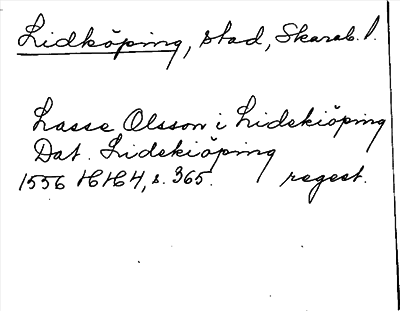 Lidköping, stad, Skarab. l.
Lasse Olsson i Lidekiöping
Dat. Lidekiöping
1556 HH 4, s. 365. regest.